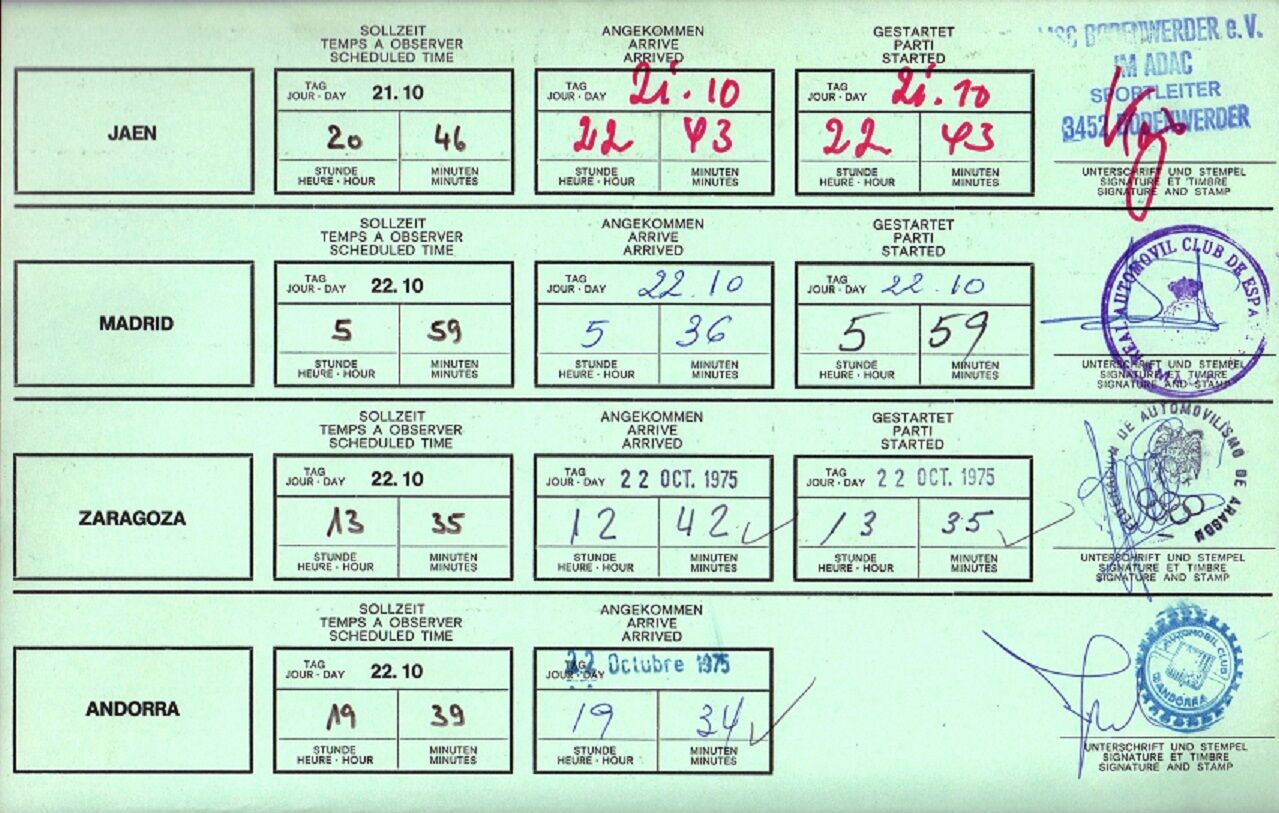 SOLLZEIT
TEMPS A OBSERVER
SCHEDULED TIME
ANGEKOMMEN
ARRIVE
ARRIVED
GESTARTET
PARTI
STARTED
MSC BODENWERDER e.V.
IM ADAC
SPORTLEITER
3452 BODENWERDER
JAEN
TAG
JOUR · DAY 21.10
20 46
STUNDE
HEURE · HOUR
MINUTEN
MINUTES
TAG
JOUR · DAY 21.10
22 43
STUNDE
HEURE · HOUR
MINUTEN
MINUTES
TAG
JOUR · DAY 21.10
22 43
STUNDE
HEURE · HOUR
MINUTEN
MINUTES
UNTERSCHRIFT UND STEMPEL
SIGNATURE ET TIMBRE
SIGNATURE AND STAMP
SOLLZEIT
TEMPS A OBSERVER
SCHEDULED TIME
ANGEKOMMEN
ARRIVE
ARRIVED
GESTARTET
PARTI
STARTED
REAL AUTOMOVIL CLUB DE ESPA
MADRID
TAG
JOUR · DAY 22.10
5 59
STUNDE
HEURE · HOUR
MINUTEN
MINUTES
TAG
JOUR · DAY 22.10
5 36
STUNDE
HEURE · HOUR
MINUTEN
MINUTES
TAG
JOUR · DAY 22.10
5 59
STUNDE
HEURE · HOUR
MINUTEN
MINUTES
UNTERSCHRIFT UND STEMPEL
SIGNATURE ET TIMBRE
SIGNATURE AND STAMP
SOLLZEIT
TEMPS A OBSERVER
SCHEDULED TIME
ANGEKOMMEN
ARRIVE
ARRIVED
GESTARTET
PARTI
STARTED
DE AUTOMOVILISMO DE ARAGON
ZARAGOZA
TAG
JOUR · DAY 22.10
13 35
STUNDE
HEURE · HOUR
MINUTEN
MINUTES
TAG
JOUR · DAY 22 OCT. 1975
12 42
STUNDE
HEURE · HOUR
MINUTEN
MINUTES
TAG
JOUR · DAY 22 OCT. 1975
13 35
STUNDE
HEURE · HOUR
MINUTEN
MINUTES
UNTERSCHRIFT UND STEMPEL
SIGNATURE ET TIMBRE
SIGNATURE AND STAMP
SOLLZEIT
TEMPS A OBSERVER
SCHEDULED TIME
ANGEKOMMEN
ARRIVE
ARRIVED
AUTOMOBIL CLUB
ANDORRA
ANDORRA
TAG
JOUR · DAY 22.10
19 39
STUNDE
HEURE · HOUR
MINUTEN
MINUTES
TAG
JOUR · DAY 22 Octubre 1975
19 34
STUNDE
HEURE · HOUR
MINUTEN
MINUTES
UNTERSCHRIFT UND STEMPEL
SIGNATURE ET TIMBRE
SIGNATURE AND STAMP